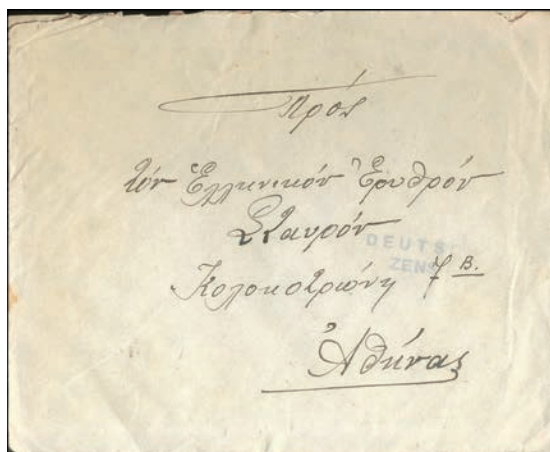 Πρός
τόν Ἑλληνικόν Ἐρυθρόν
Σταυρόν
DEUTS
ZENS
Κολοκοτρώνη 7 Β.
Ἀθήνας